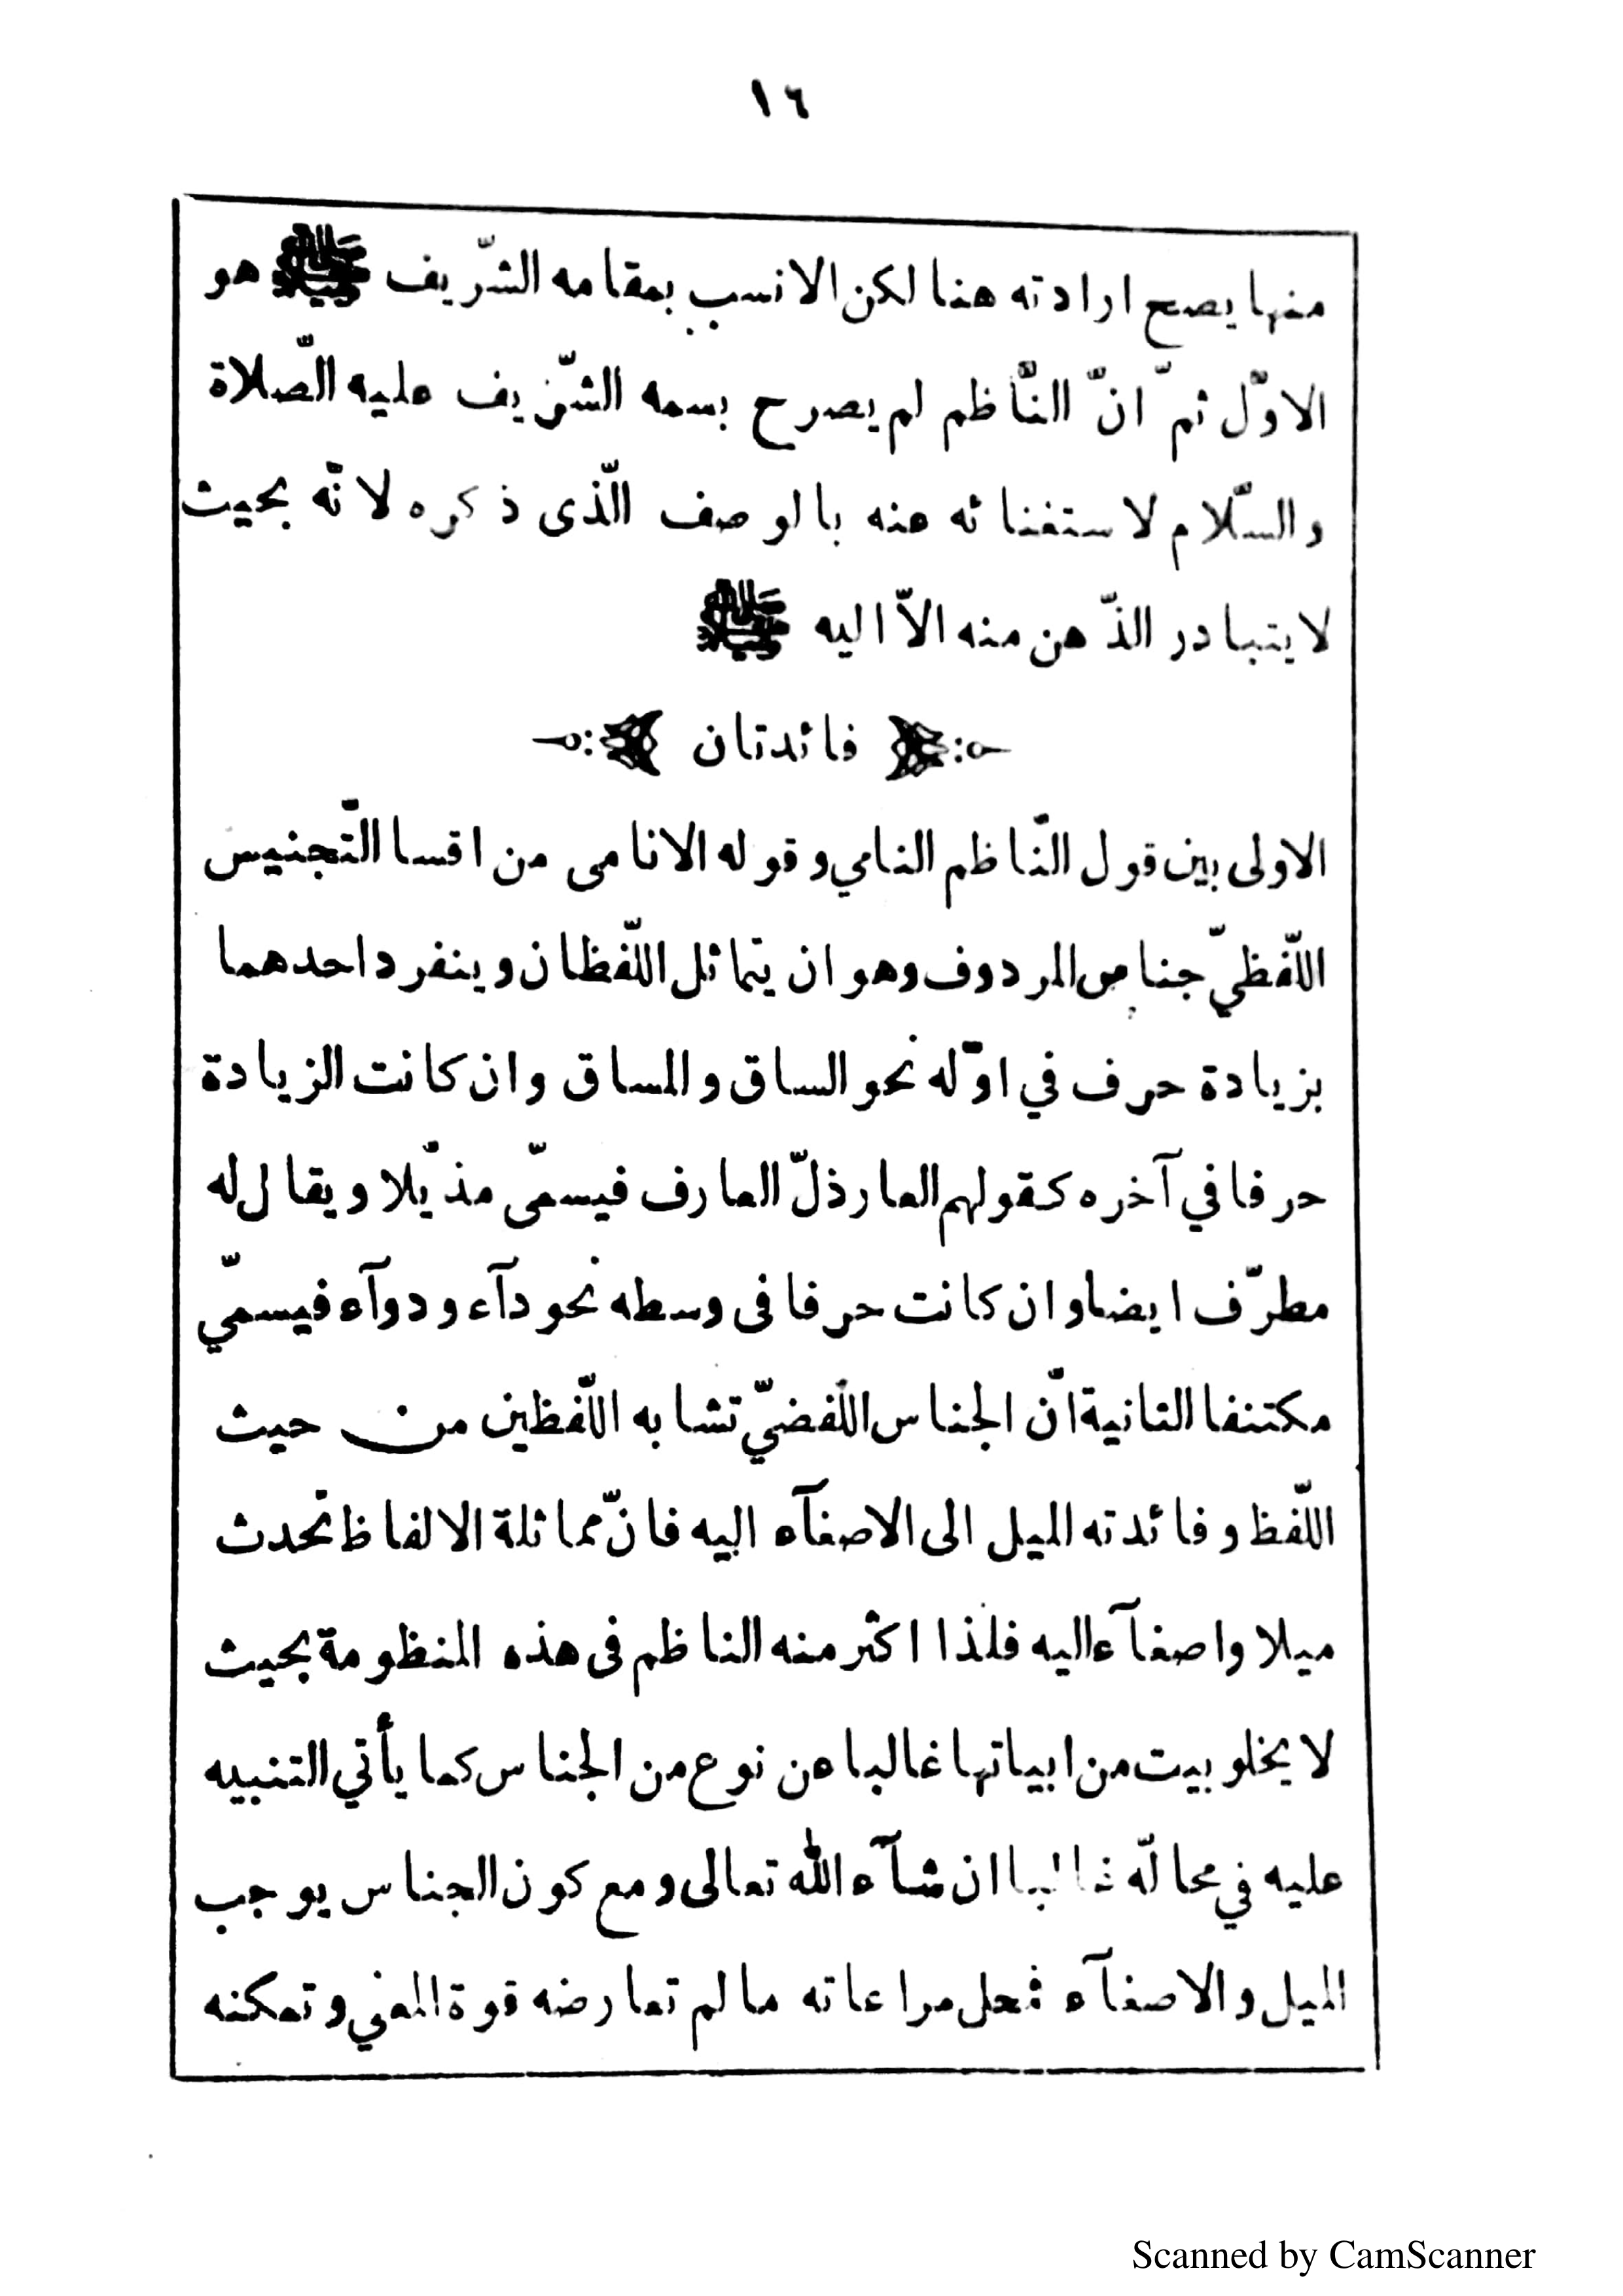 ١٦
منها يصح ارادته هنا لكن الانسب بمقامه الشّريف ﷺ هو
الاوّل ثمّ انّ النّاظم لم يصرح بسمه الشّريف عليه الصّلاة
والسّلام لاستغنائه عنه بالوصف الّذى ذكره لانّه بحيث
لايتبادر الذّهن منه الاّ اليه ﷺ
فائدتان
الاولى بين قول النّاظم النامي وقوله الانامى من اقسا التّجنيس
اللّفظيّ جناس المردوف وهو ان يتماثل اللّفظان وينفرد احدهما
بزيادة حرف في اوّله نحو الساق والمساق وان كانت الزيادة
حرفا في آخره كقولهم العار ذلّ العارف فيسمّى مذيّلا ويقال له
مطرّف ايضا وان كانت حرفا فى وسطه نحو دآء ودوآء فيسمّي
مكتنفا الثانية انّ الجناس اللّفضيّ تشابه اللّفظين من حيث
اللّفظ وفائدته الميل الى الاصغآء اليه فانّ مماثلة الالفاظ تحدث
ميلا واصغآء اليه فلذا اكثر منه الناظم فى هذه المنظومة بحيث
لايخلو بيت من ابياتها غالبا عن نوع من الجناس كما يأتي التنبيه
عليه في محالّه غالبا ان شآء الله تعالى ومع كون الجناس يوجب
الميل والاصغآء فمحل مراعاته مالم تعارضه قوة المعني وتمكنه
Scanned by CamScanner